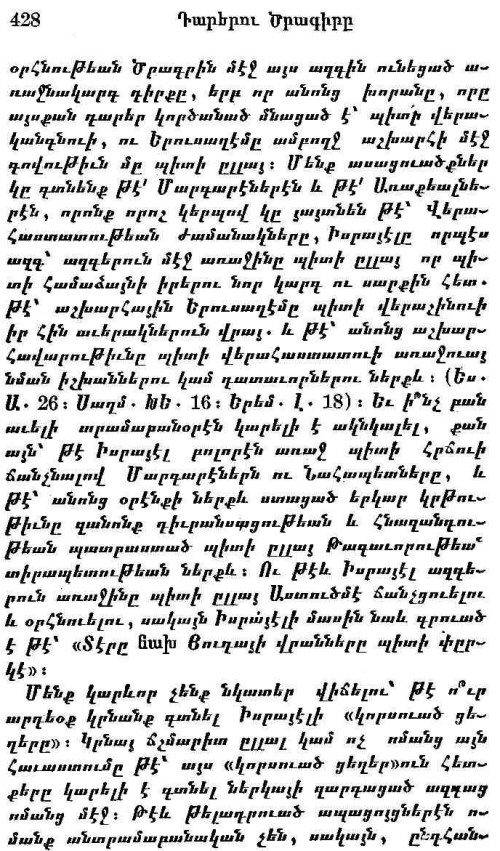 428 Դարերու Ծրագիրը
օրհնութեան Ծրագրին մէջ այս ազգին ունեցած ա-
ռաջնակարգ դիրքը, երբ որ անոնց խորանը, որը
այսքան դարեր կործանած մնացած է՝ պիտի վերա-
կանգնուի, ու Երուսաղէմը ամբողջ աշխարհի մէջ
գովութիւն մը պիտի ըլլայ։ Մենք ասացուածքներ
կը գտնենք թէ՛ Մարգարէներէն և թէ՛ Առաքեալնե-
րէն, որոնք որոշ կերպով կը յայտնեն թէ՝ Վերա-
հաստատութեան ժամանակները, Իսրայէլը որպէս
ազգ՝ ազգերուն մէջ առաջինը պիտի ըլլայ որ պի-
տի համաձայնի իրերու նոր կարդ ու սարքին հետ.
թէ՝ աշխարհային Երուսաղէմը պիտի վերաշինուի
իր հին աւերակներուն վրայ. և թէ՝ անոնց աշխար-
հավարութիւնը պիտի վերահաստատուի առաջուայ
նման իշխաններու կամ դատաւորներու ներքև։ (Ես.
Ա. 26։ Սաղմ. ԽԵ. 16։ Երեմ. Լ. 18)։ Եւ ի՞նչ բան
աւելի տրամաբանօրէն կարելի է ակնկալել, քան
այն՝ թէ Իսրայէլ բոլորէն առաջ պիտի հրճուի
ճանչնալով Մարգարէներն ու Նահապետները, և
թէ՝ անոնց օրէնքի ներքև ստացած երկար կրթու-
թիւնը զանոնք դիւրանսացութեան և հնազանդու-
թեան պատրաստած պիտի ըլլայ Թագաւորութեա՝
տիրապետութեան ներքև։ Ու թէև Իսրայէլ ազգե-
րուն առաջինը պիտի ըլլայ Աստուծմէ ճանչցուելու
և օրհնուելու, սակայն Իսրայէլի մասին նաև գրուած
է թէ՝ «Տէրը նախ Յուդայի վրանները պիտի փըր-
կէ»։
Մենք կարևոր չենք նկատեր վիճելու՝ թէ ո՞ւր
արդեօք կրնանք գտնել Իսրայէլի «կորսուած ցե-
ղերը»։ Կրնայ ճշմարիտ ըլլալ կամ ոչ ոմանց այն
հաւաստումը թէ՝ այս «կորսուած ցեղեր»ուն հետ-
քերը կարելի է գտնել ներկայի զարգացած ազգաց
ոմանց մէջ։ Թէև թելադրուած ապացոյցներէն ո-
մանք անտրամաբանական չեն, սակայն, ընդհան-